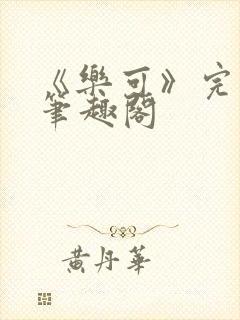 《樂可》完
筆趣閣
黃丹華